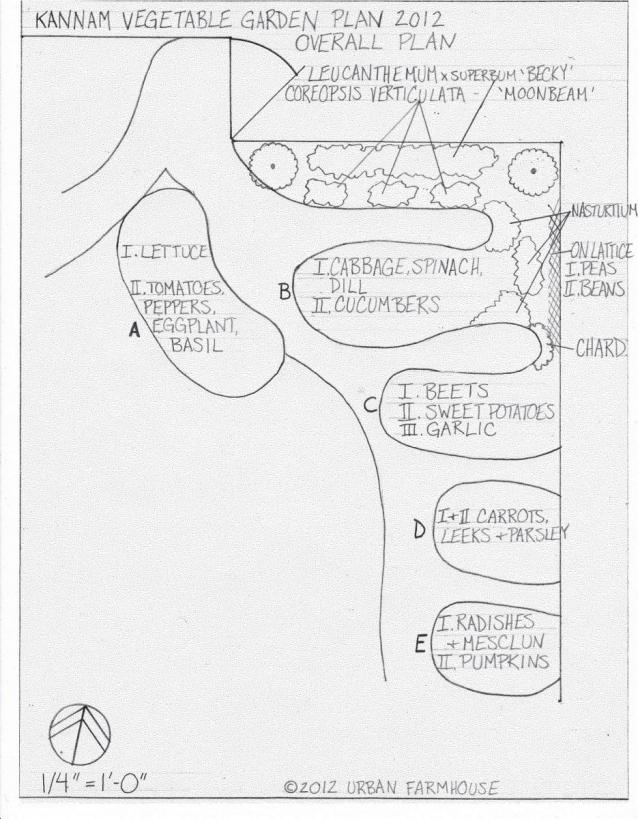 KANNAM VEGETABLE GARDEN PLAN 2012
OVERALL PLAN
LEUCANTHEMUM x SUPERBUM 'BECKY'
COREOPSIS VERTICULATA - 'MOONBEAM'
NASTURTIUM
ON LATTICE
I. PEAS
II. BEANS
CHARD
A
I. LETTUCE
II. TOMATOES,
PEPPERS,
EGGPLANT,
BASIL
B
I. CABBAGE, SPINACH,
DILL
II. CUCUMBERS
C
I. BEETS
II. SWEET POTATOES
III. GARLIC
D
I + II CARROTS,
LEEKS + PARSLEY
E
I. RADISHES
+ MESCLUN
II. PUMPKINS
1/4" = 1'-0"
©2012 URBAN FARMHOUSE